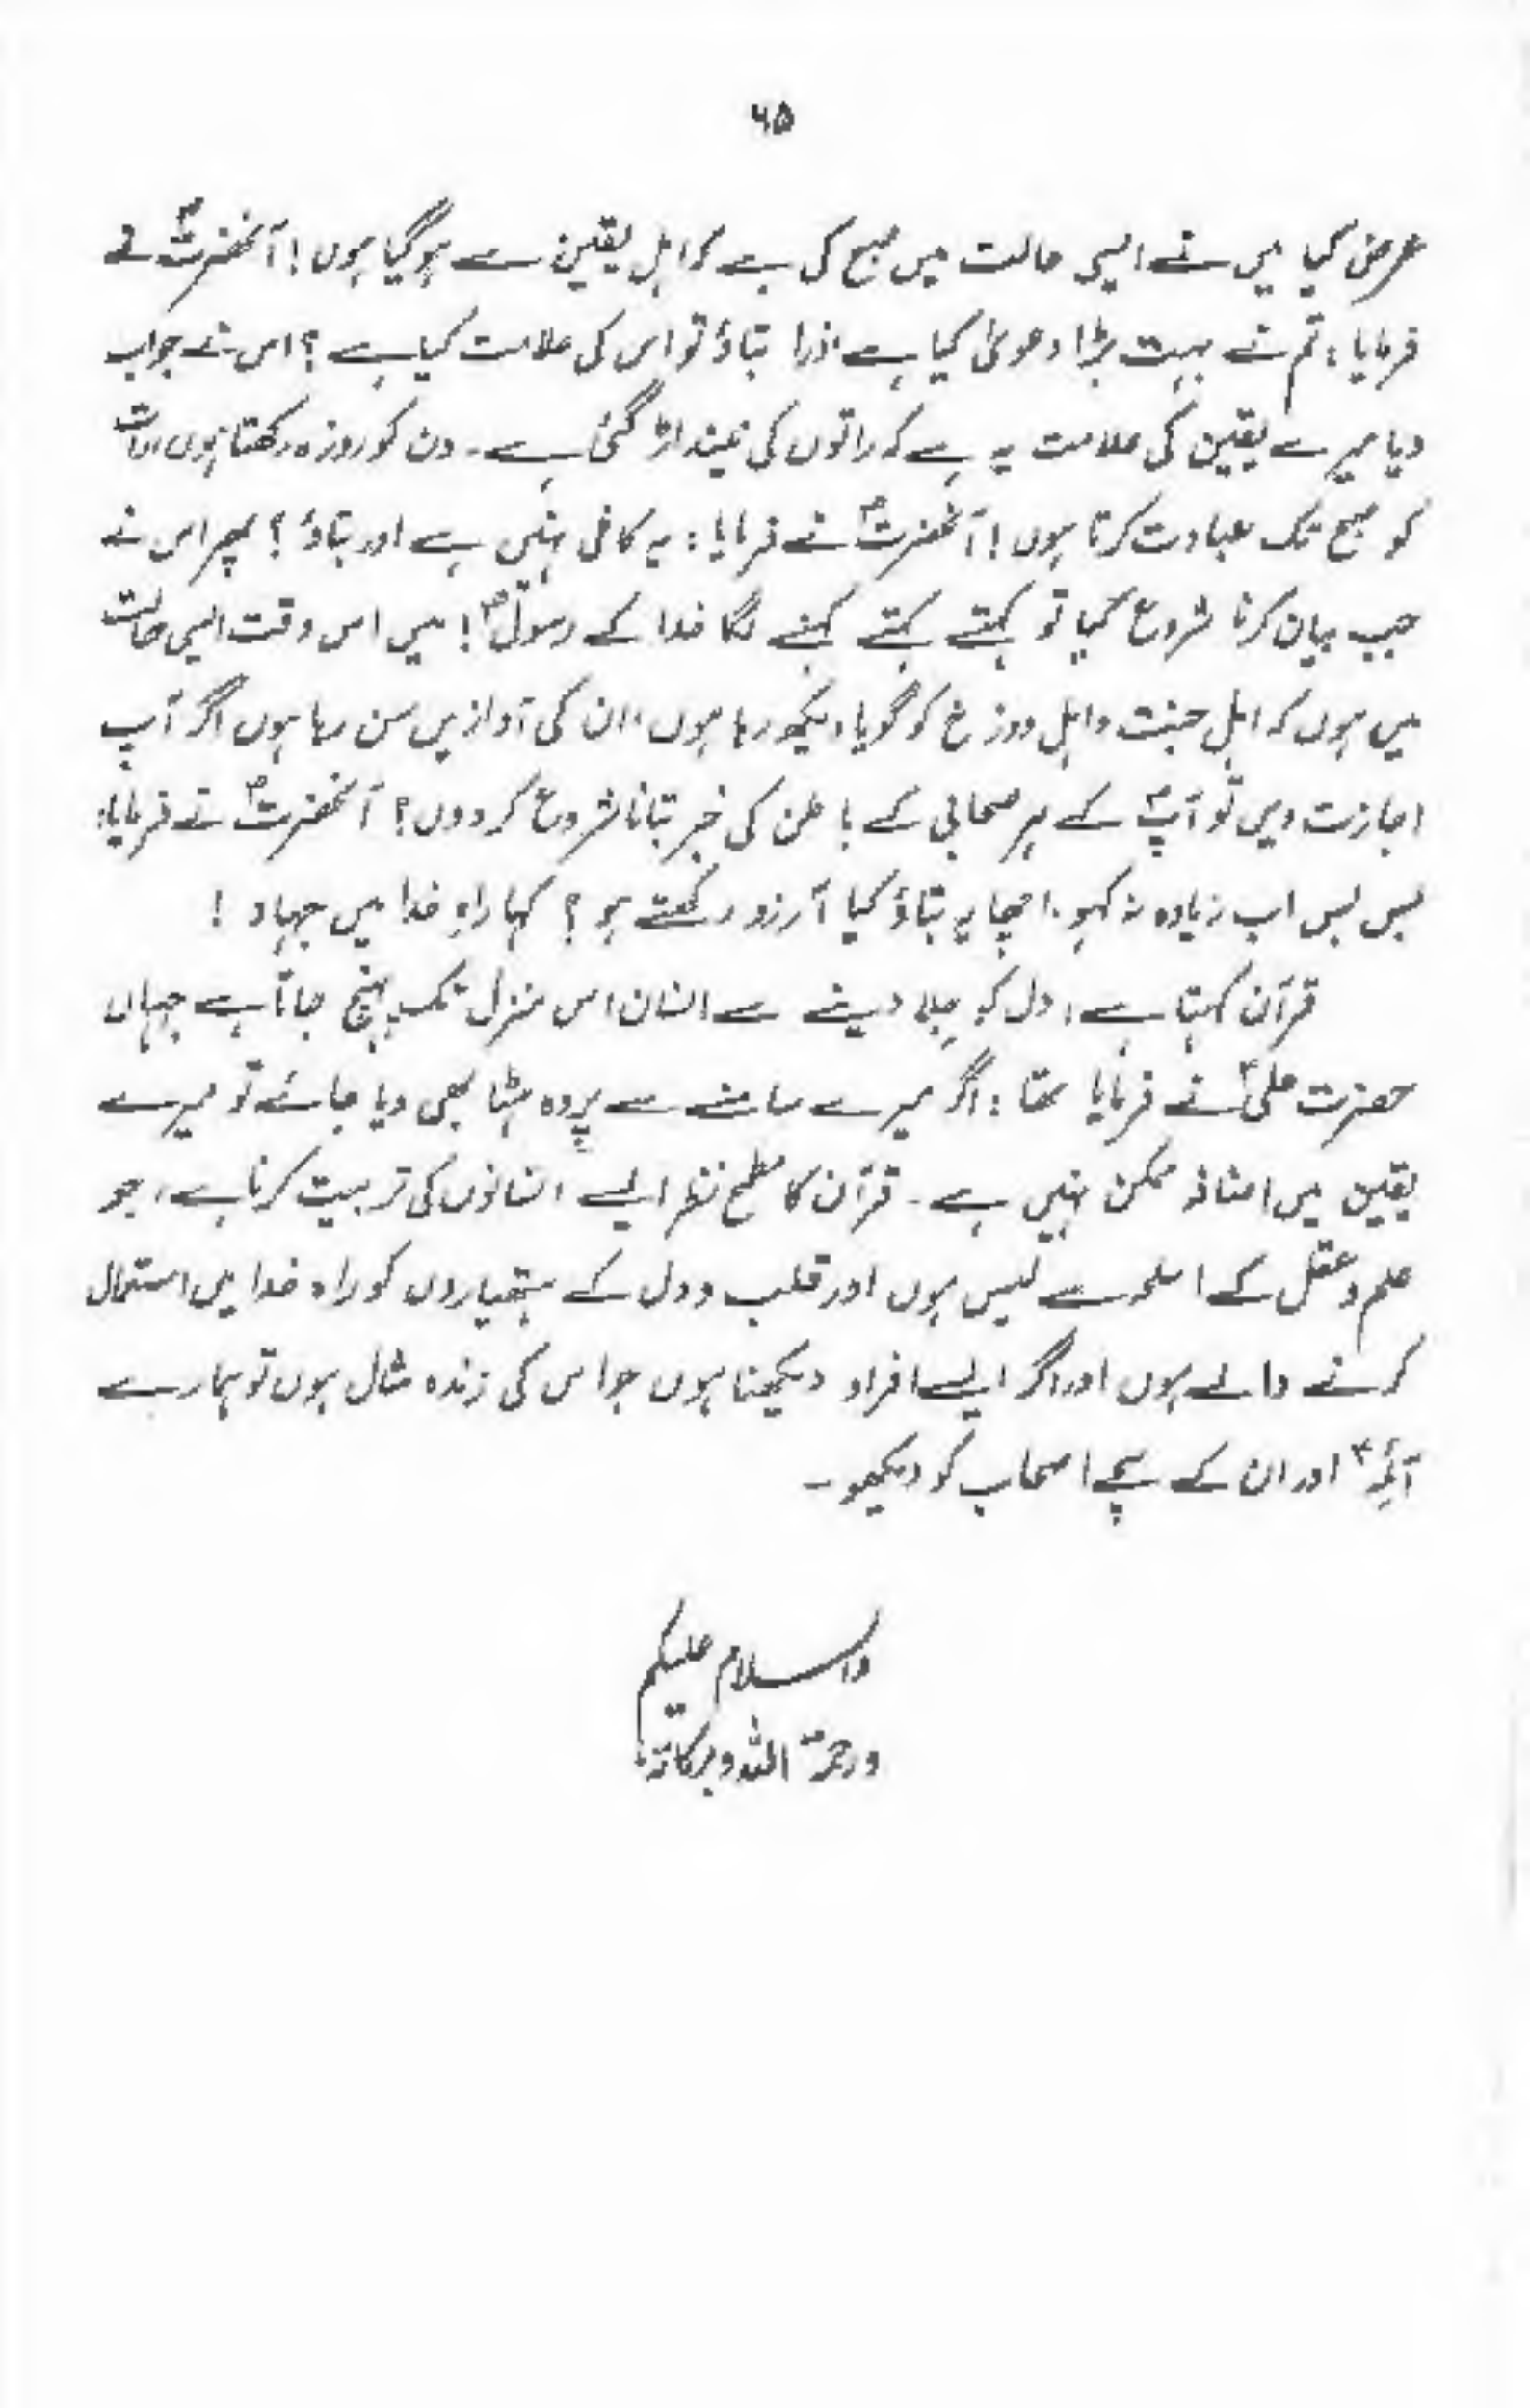 ۶۵
عرض کیا میں نے ایسی حالت میں صبح کی ہے کہ اہل یقین سے ہوگیا ہوں! آنحضرتؐ نے
فرمایا: تم نے بہت بڑا دعویٰ کیا ہے، ذرا بتاؤ تو اس کی علامت کیا ہے؟ اس نے جواب
دیا میرے یقین کی علامت یہ ہے کہ راتوں کی نیند اڑ گئی ہے۔ دن کو روزہ رکھتا ہوں، رات
کو صبح تک عبادت کرتا ہوں! آنحضرتؐ نے فرمایا: یہ کافی نہیں ہے اور بتاؤ؟ پھر اس نے
جب بیان کرنا شروع کیا تو کہتے کہتے کہنے لگا خدا کے رسولؐ! میں اس وقت ایسی حالت
میں ہوں کہ اہل جنت و اہل دوزخ کو گویا دیکھ رہا ہوں، ان کی آوازیں سن رہا ہوں اگر آپ
اجازت دیں تو آپؐ کے ہر صحابی کے باطن کی خبر بتانا شروع کر دوں؟ آنحضرتؐ نے فرمایا:
بس بس اب زیادہ نہ کہو، اچھا یہ بتاؤ کیا آرزو رکھتے ہو؟ کہا راہِ خدا میں جہاد!
قرآن کہتا ہے، دل کو جِلا دینے سے انسان اس منزل تک پہنچ جاتا ہے جہاں
حضرت علیؑ نے فرمایا تھا: اگر میرے سامنے سے پردہ ہٹا بھی دیا جائے تو میرے
یقین میں اضافہ ممکن نہیں ہے۔ قرآن کا مطمح نظر ایسے انسانوں کی تربیت کرنا ہے، جو
علم و عقل کے اسلحہ سے لیس ہوں اور قلب و دل کے ہتھیاروں کو راہ خدا میں استعمال
کرنے والے ہوں اور اگر ایسے افراد دیکھنا ہوں جو اس کی زندہ مثال ہوں تو ہمارے
آئمہؑ اور ان کے سچے اصحاب کو دیکھو۔
والسلام علیکم
ورحمۃ اللہ وبرکاتہ